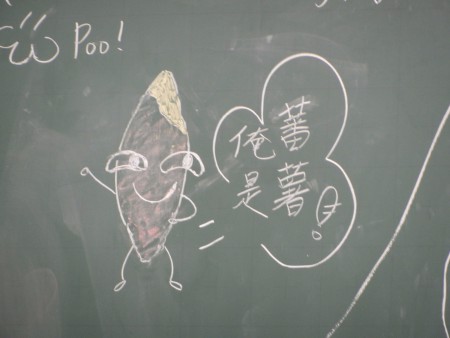 Poo!
俺是
蕃薯!